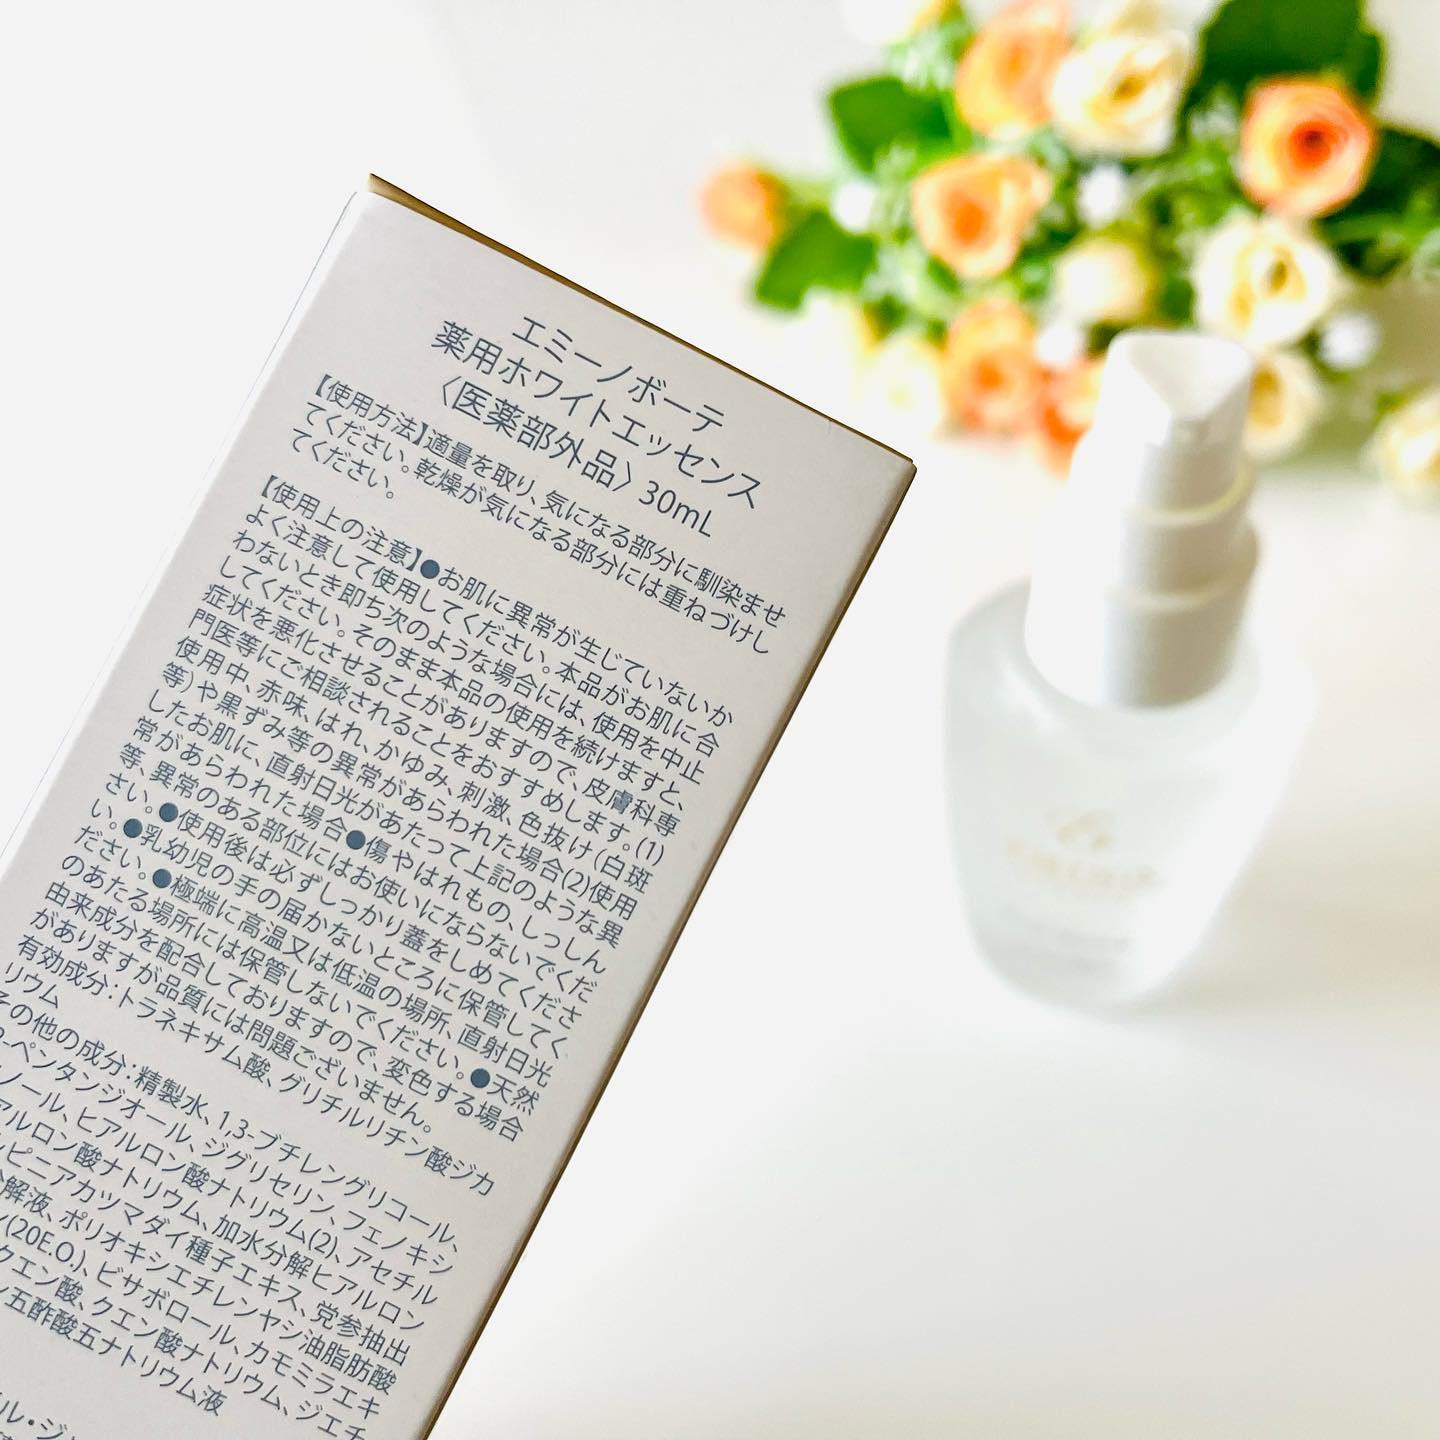 エミーノボーテ
薬用ホワイトエッセンス
〈医薬部外品〉 30mL
【使用方法】適量を取り、気になる部分に馴染ませ
てください。乾燥が気になる部分には重ねづけし
てください。
【使用上の注意】●お肌に異常が生じていないか
よく注意して使用してください。本品がお肌に合
わないとき即ち次のような場合には、使用を中止
してください。そのまま本品の使用を続けますと、
症状を悪化させることがありますので、皮膚科専
門医等にご相談されることをおすすめします。(1)
使用中、赤味、はれ、かゆみ、刺激、色抜け(白斑
等)や黒ずみ等の異常があらわれた場合(2)使用
したお肌に、直射日光があたって上記のような異
常があらわれた場合●傷やはれもの、しっしん
等、異常のある部位にはお使いにならないでくだ
さい。●使用後は必ずしっかり蓋をしめてくださ
い。●乳幼児の手の届かないところに保管してく
ださい。●極端に高温又は低温の場所、直射日光
のあたる場所には保管しないでください。●天然
由来成分を配合しておりますので、変色する場合
がありますが品質には問題ございません。
有効成分：トラネキサム酸、グリチルリチン酸ジカ
リウム
その他の成分：精製水、1,3-ブチレングリコール、
-ペンタンジオール、ジグリセリン、フェノキシ
ノール、ヒアルロン酸ナトリウム(2)、アセチル
アルロン酸ナトリウム、加水分解ヒアルロン
ピニアカツマダイ種子エキス、党参抽出
解液、ポリオキシエチレンヤシ油脂肪酸
(20E.O.)、ビサボロール、カモミラエキ
クエン酸、クエン酸ナトリウム、ジエチ
五酢酸五ナトリウム液